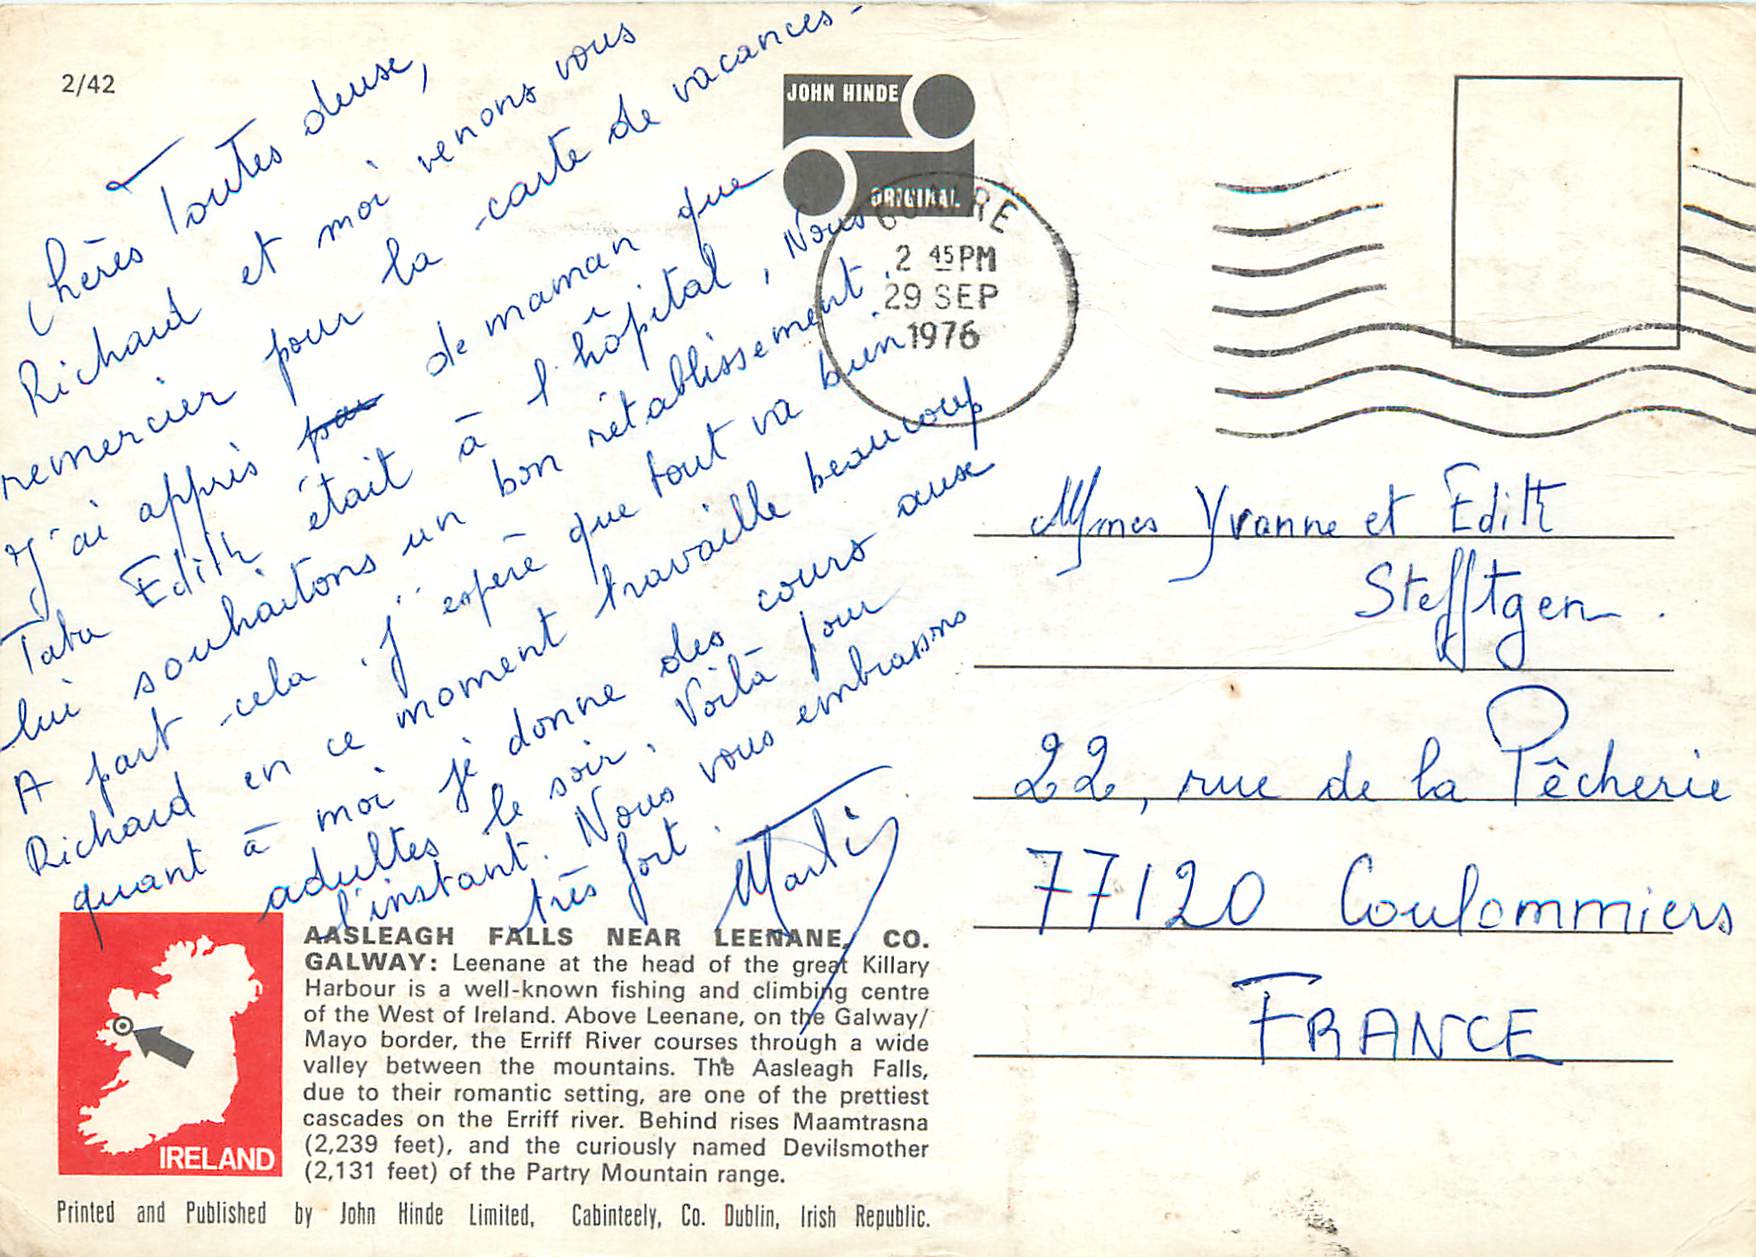 2/42
Chères Toutes deux,
Richard et moi venons vous
remercier pour la carte de vacances-
J'ai appris par de maman que
Tata Edith était à l'hôpital, Nous
lui souhaitons un bon rétablissement.
A part cela j'espère que tout va bien
Richard en ce moment travaille beaucoup
quant à moi je donne des cours aux
adultes le soir. Voilà pour
l'instant. Nous vous embrassons
très fort.
JOHN HINDE
ORIGINAL
2 45PM
29 SEP
1976
Mmes Yvonne et Edith
Stefftgen.
22, rue de la Pêcherie
77120 Coulommiers
FRANCE
IRELAND
AASLEAGH FALLS NEAR LEENANE, CO.
GALWAY: Leenane at the head of the great Killary
Harbour is a well-known fishing and climbing centre
of the West of Ireland. Above Leenane, on the Galway/
Mayo border, the Erriff River courses through a wide
valley between the mountains. The Aasleagh Falls,
due to their romantic setting, are one of the prettiest
cascades on the Erriff river. Behind rises Maamtrasna
(2,239 feet), and the curiously named Devilsmother
(2,131 feet) of the Partry Mountain range.
Printed and Published by John Hinde Limited, Cabinteely, Co. Dublin, Irish Republic.